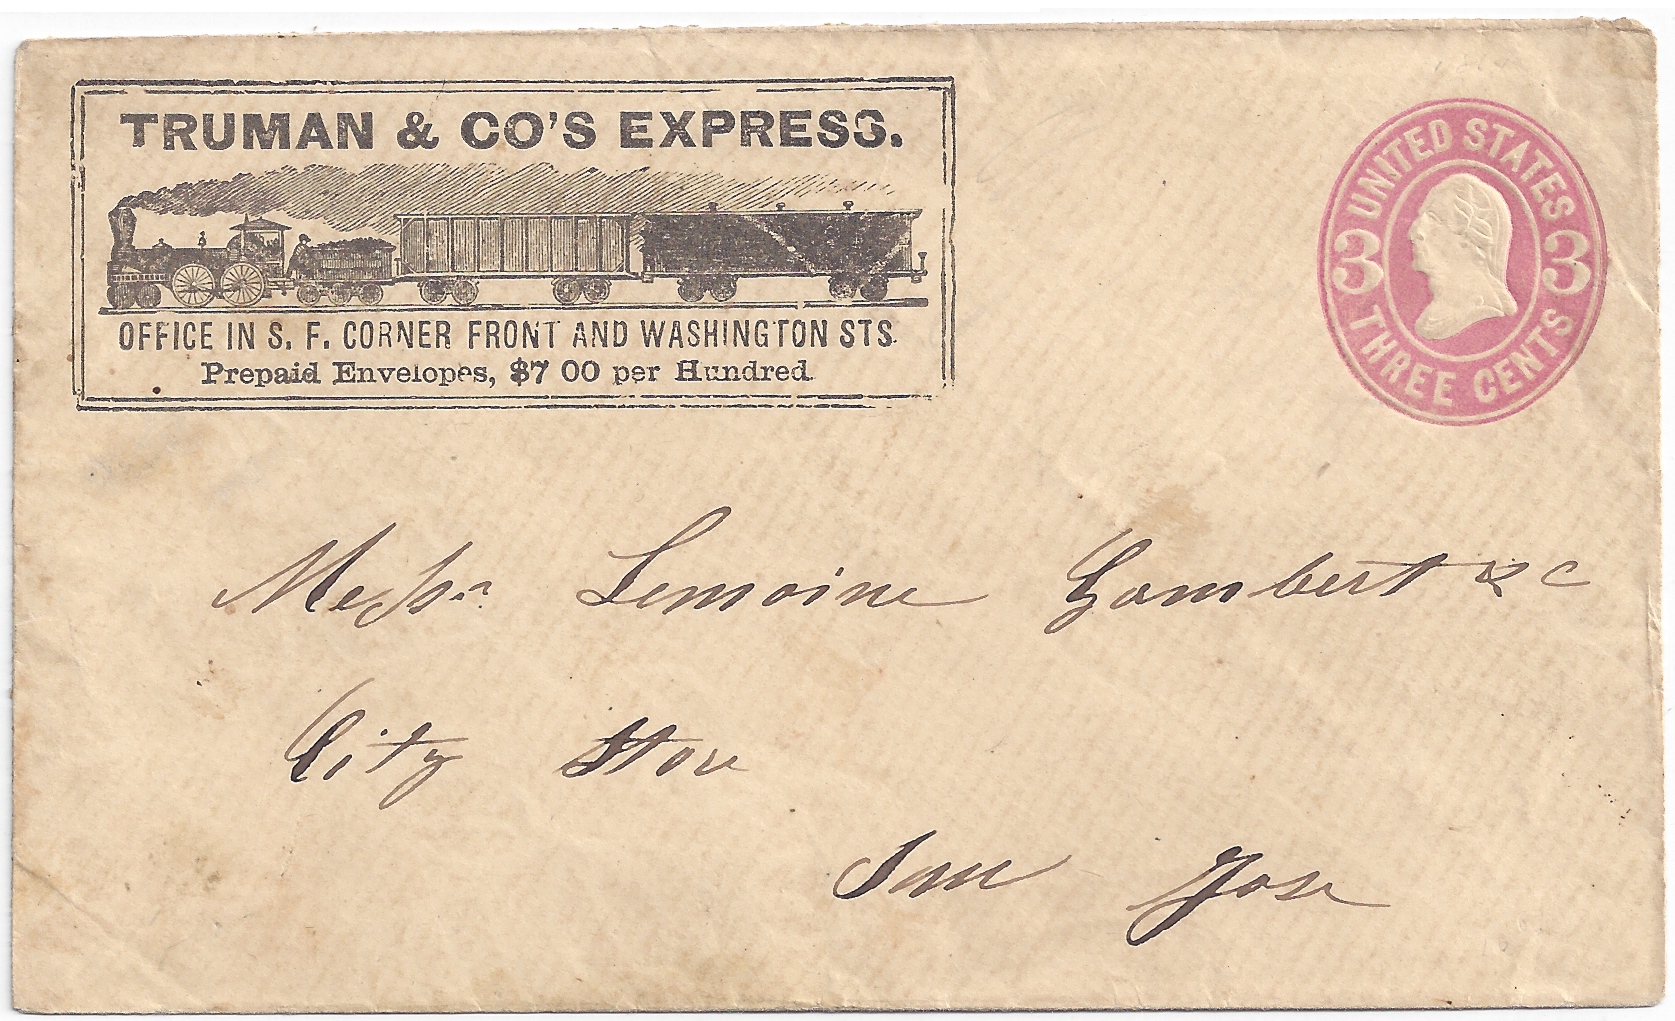 TRUMAN & CO'S EXPRESS.
OFFICE IN S. F. CORNER FRONT AND WASHINGTON STS.
Prepaid Envelopes, $7 00 per Hundred.
UNITED STATES
3 3
THREE CENTS
Messrs Lemoine Gambert & C
City Store
San Jose